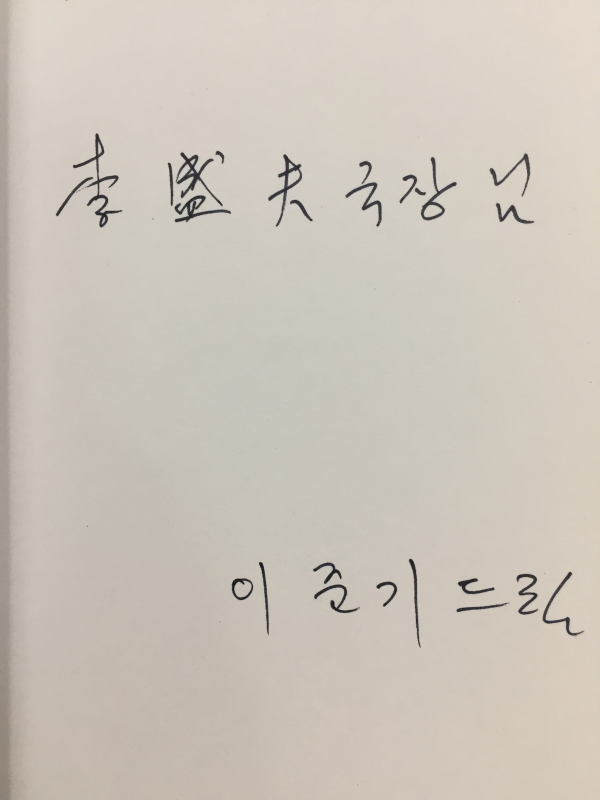 李盛夫 국장님
이준기 드림